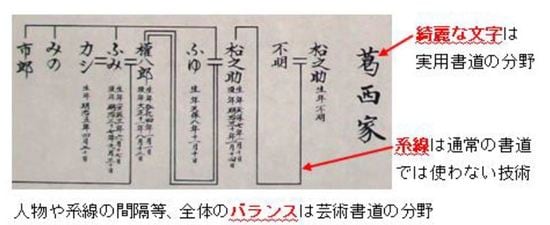 葛西家
松之助 生年不明
不明
松之助
ふゆ 生年 天保八年十一月十日
権八郎
ふみ
カシ 生年 明治五年四月五十日
みの
市郎
綺麗な文字は
実用書道の分野
系線は通常の書道
では使わない技術
人物や系線の間隔等、全体のバランスは芸術書道の分野